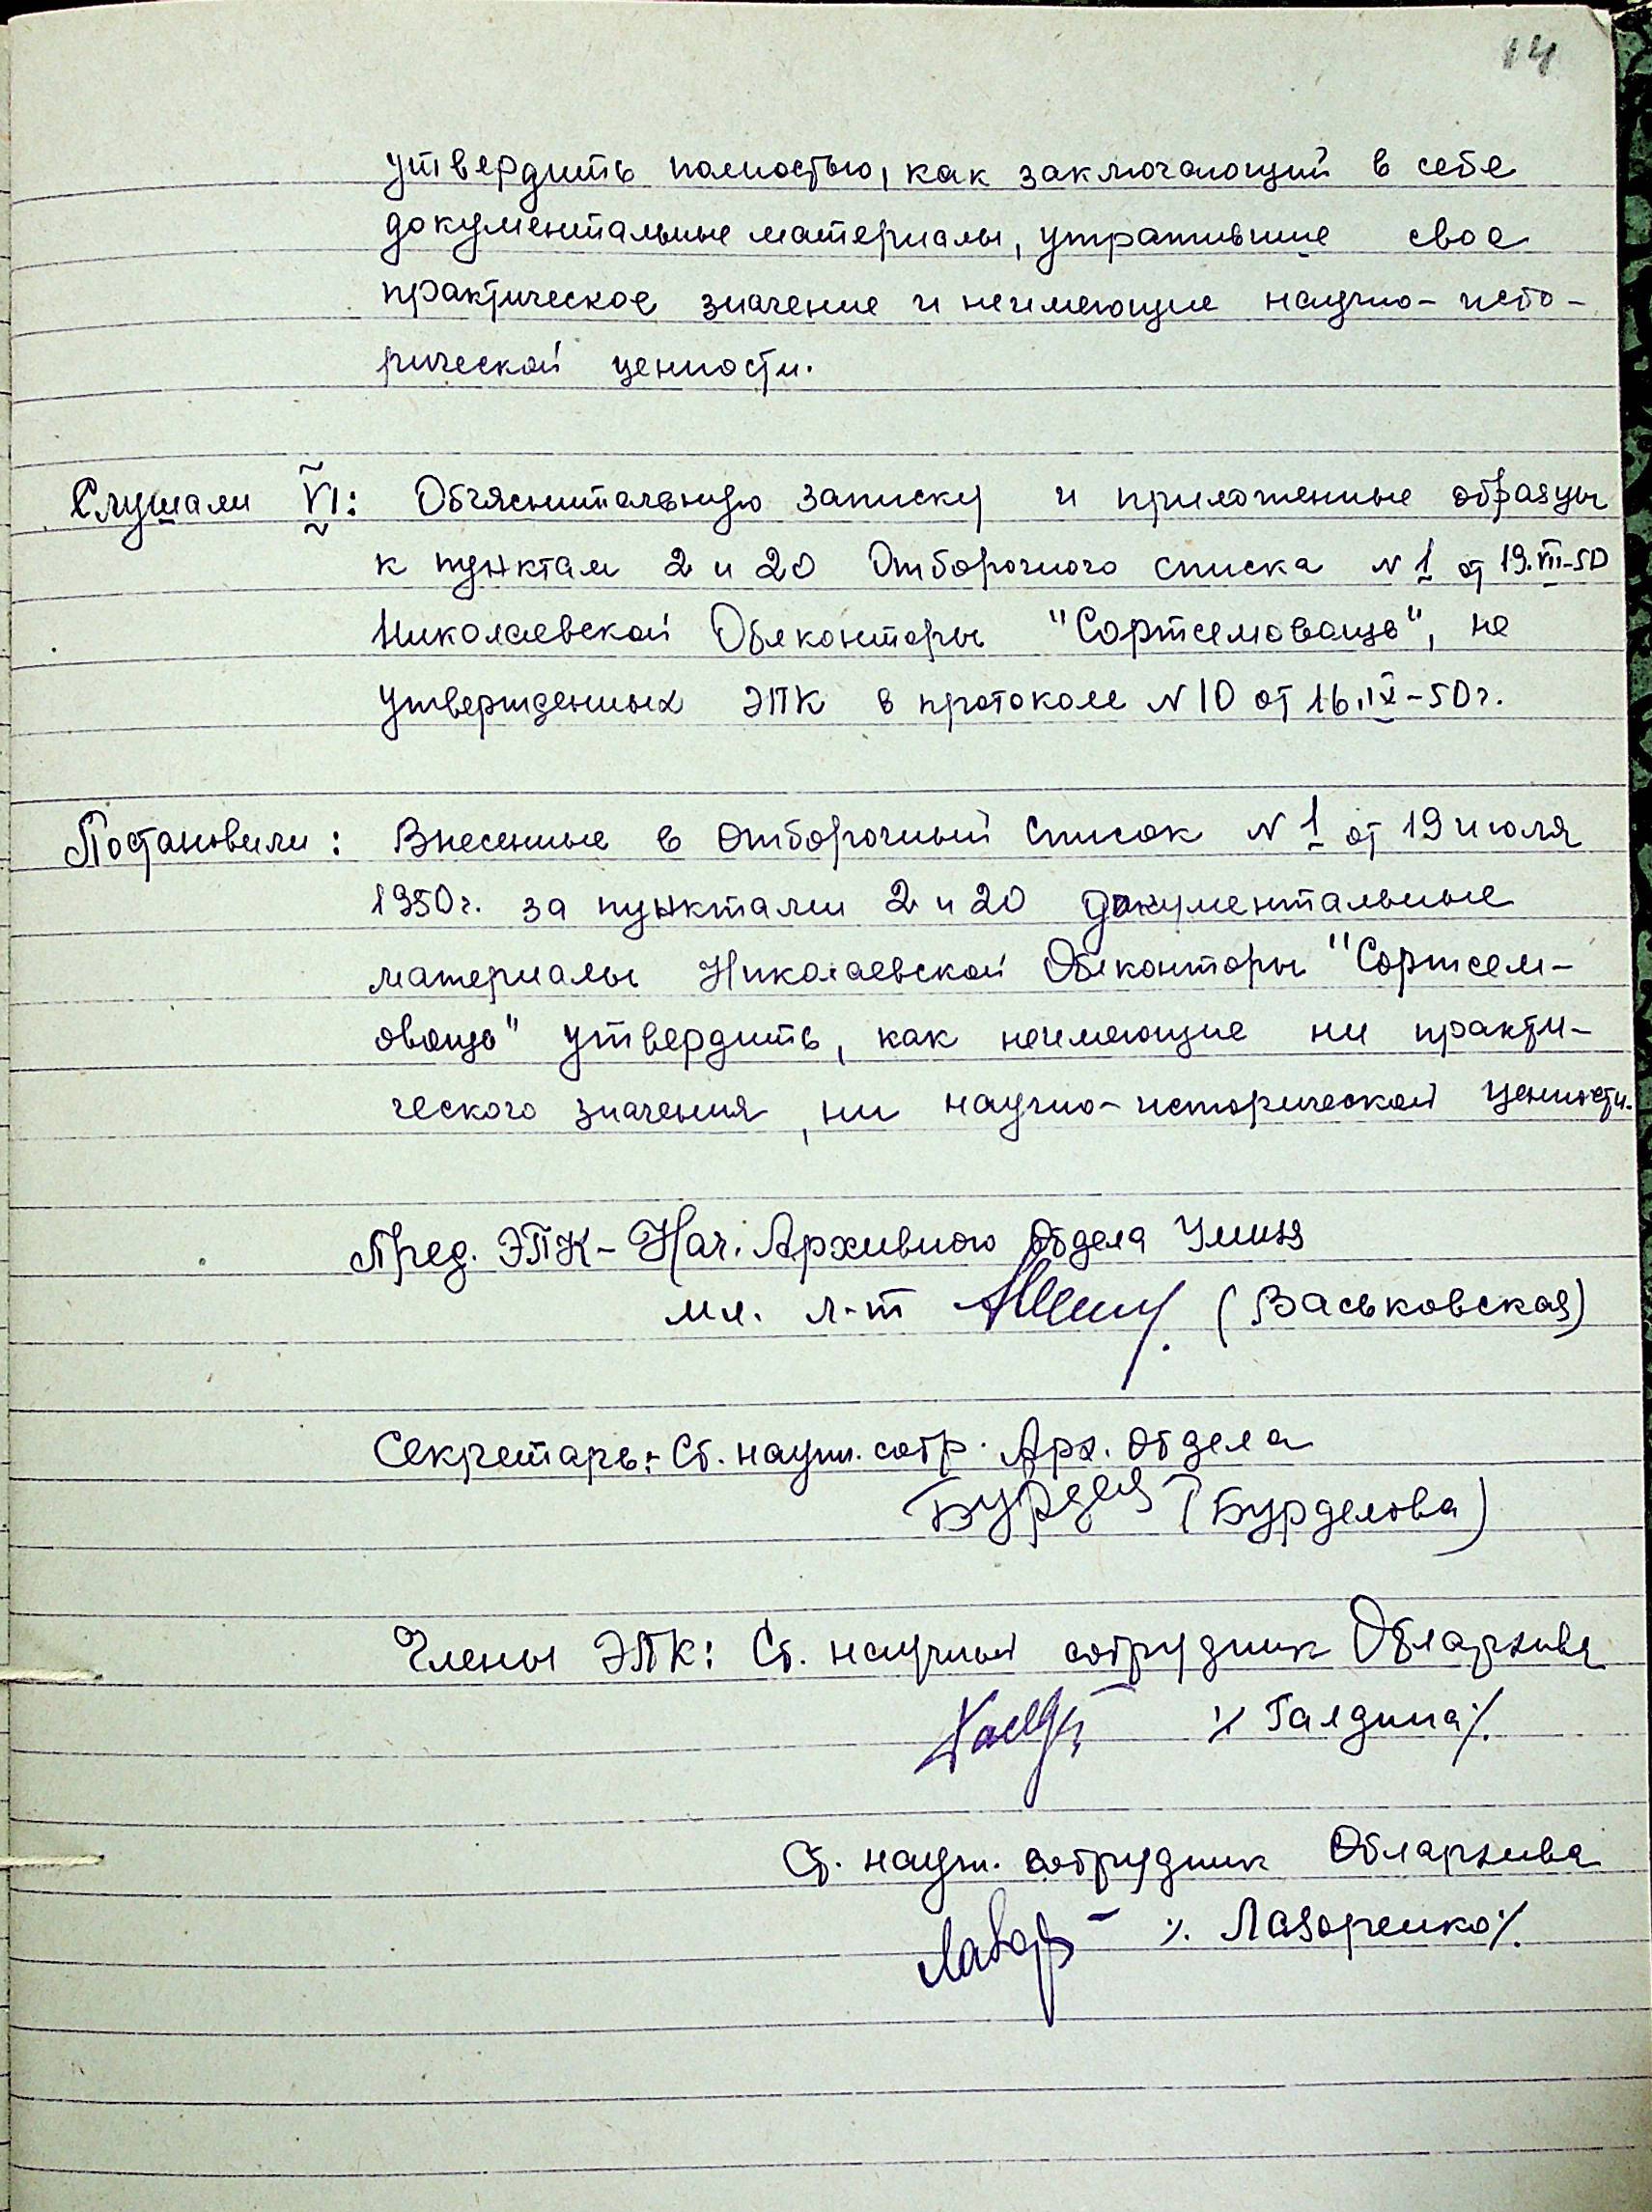 14
утвердить полностью, как заключающий в себе
документальные материалы, утратившие свое
практическое значение и неимеющие научно-исто-
рической ценности.
Слушали VI: Объяснительную записку и приложенные образцы
к пунктам 2 и 20 Отборочного списка N 1 от 19.VII-50
Николаевской Облконторы "Сортсемовощ", не
утвержденных ЭПК в протоколе N 10 от 16.IX-50г.
Постановили: Внесенные в Отборочный список N 1 от 19 июля
1950г. за пунктами 2 и 20 документальные
материалы Николаевской Облконторы "Сортсем-
овощ" утвердить, как неимеющие ни практи-
ческого значения, ни научно-исторической ценности.
Пред. ЭПК - Нач. Архивного отдела УМВД
мл. л-т (Васьковская)
Секретарь: Ст. научн. сотр. Арх. отдела
Бурдел (Бурделова)
Члены ЭПК: Ст. научный сотрудник Облархива
/Галдина/.
Ст. научн. сотрудник Облархива
/. Лазоренко/.